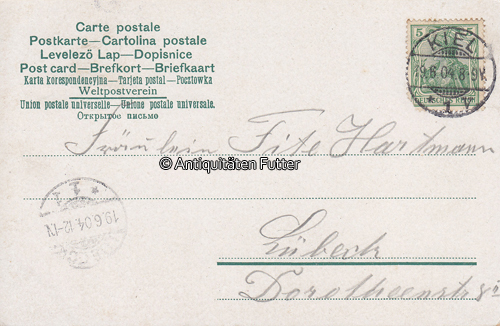 Carte postale
Postkarte—Cartolina postale
Levelező Lap—Dopisnice
Post card—Brefkort—Briefkaart
Karta korespondencyjna—Tarjeta postal—Pocztowka
Weltpostverein
Union postale universelle—Unione postale universale.
Открытое письмо
5
KIEL
6.04.8-9V.
* 1 y
DEUTSCHES REICH
Fräulein Fite Hartmann
© Antiquitäten Futter
19.6.04.12-1N
Lübeck
Dorotheenstr